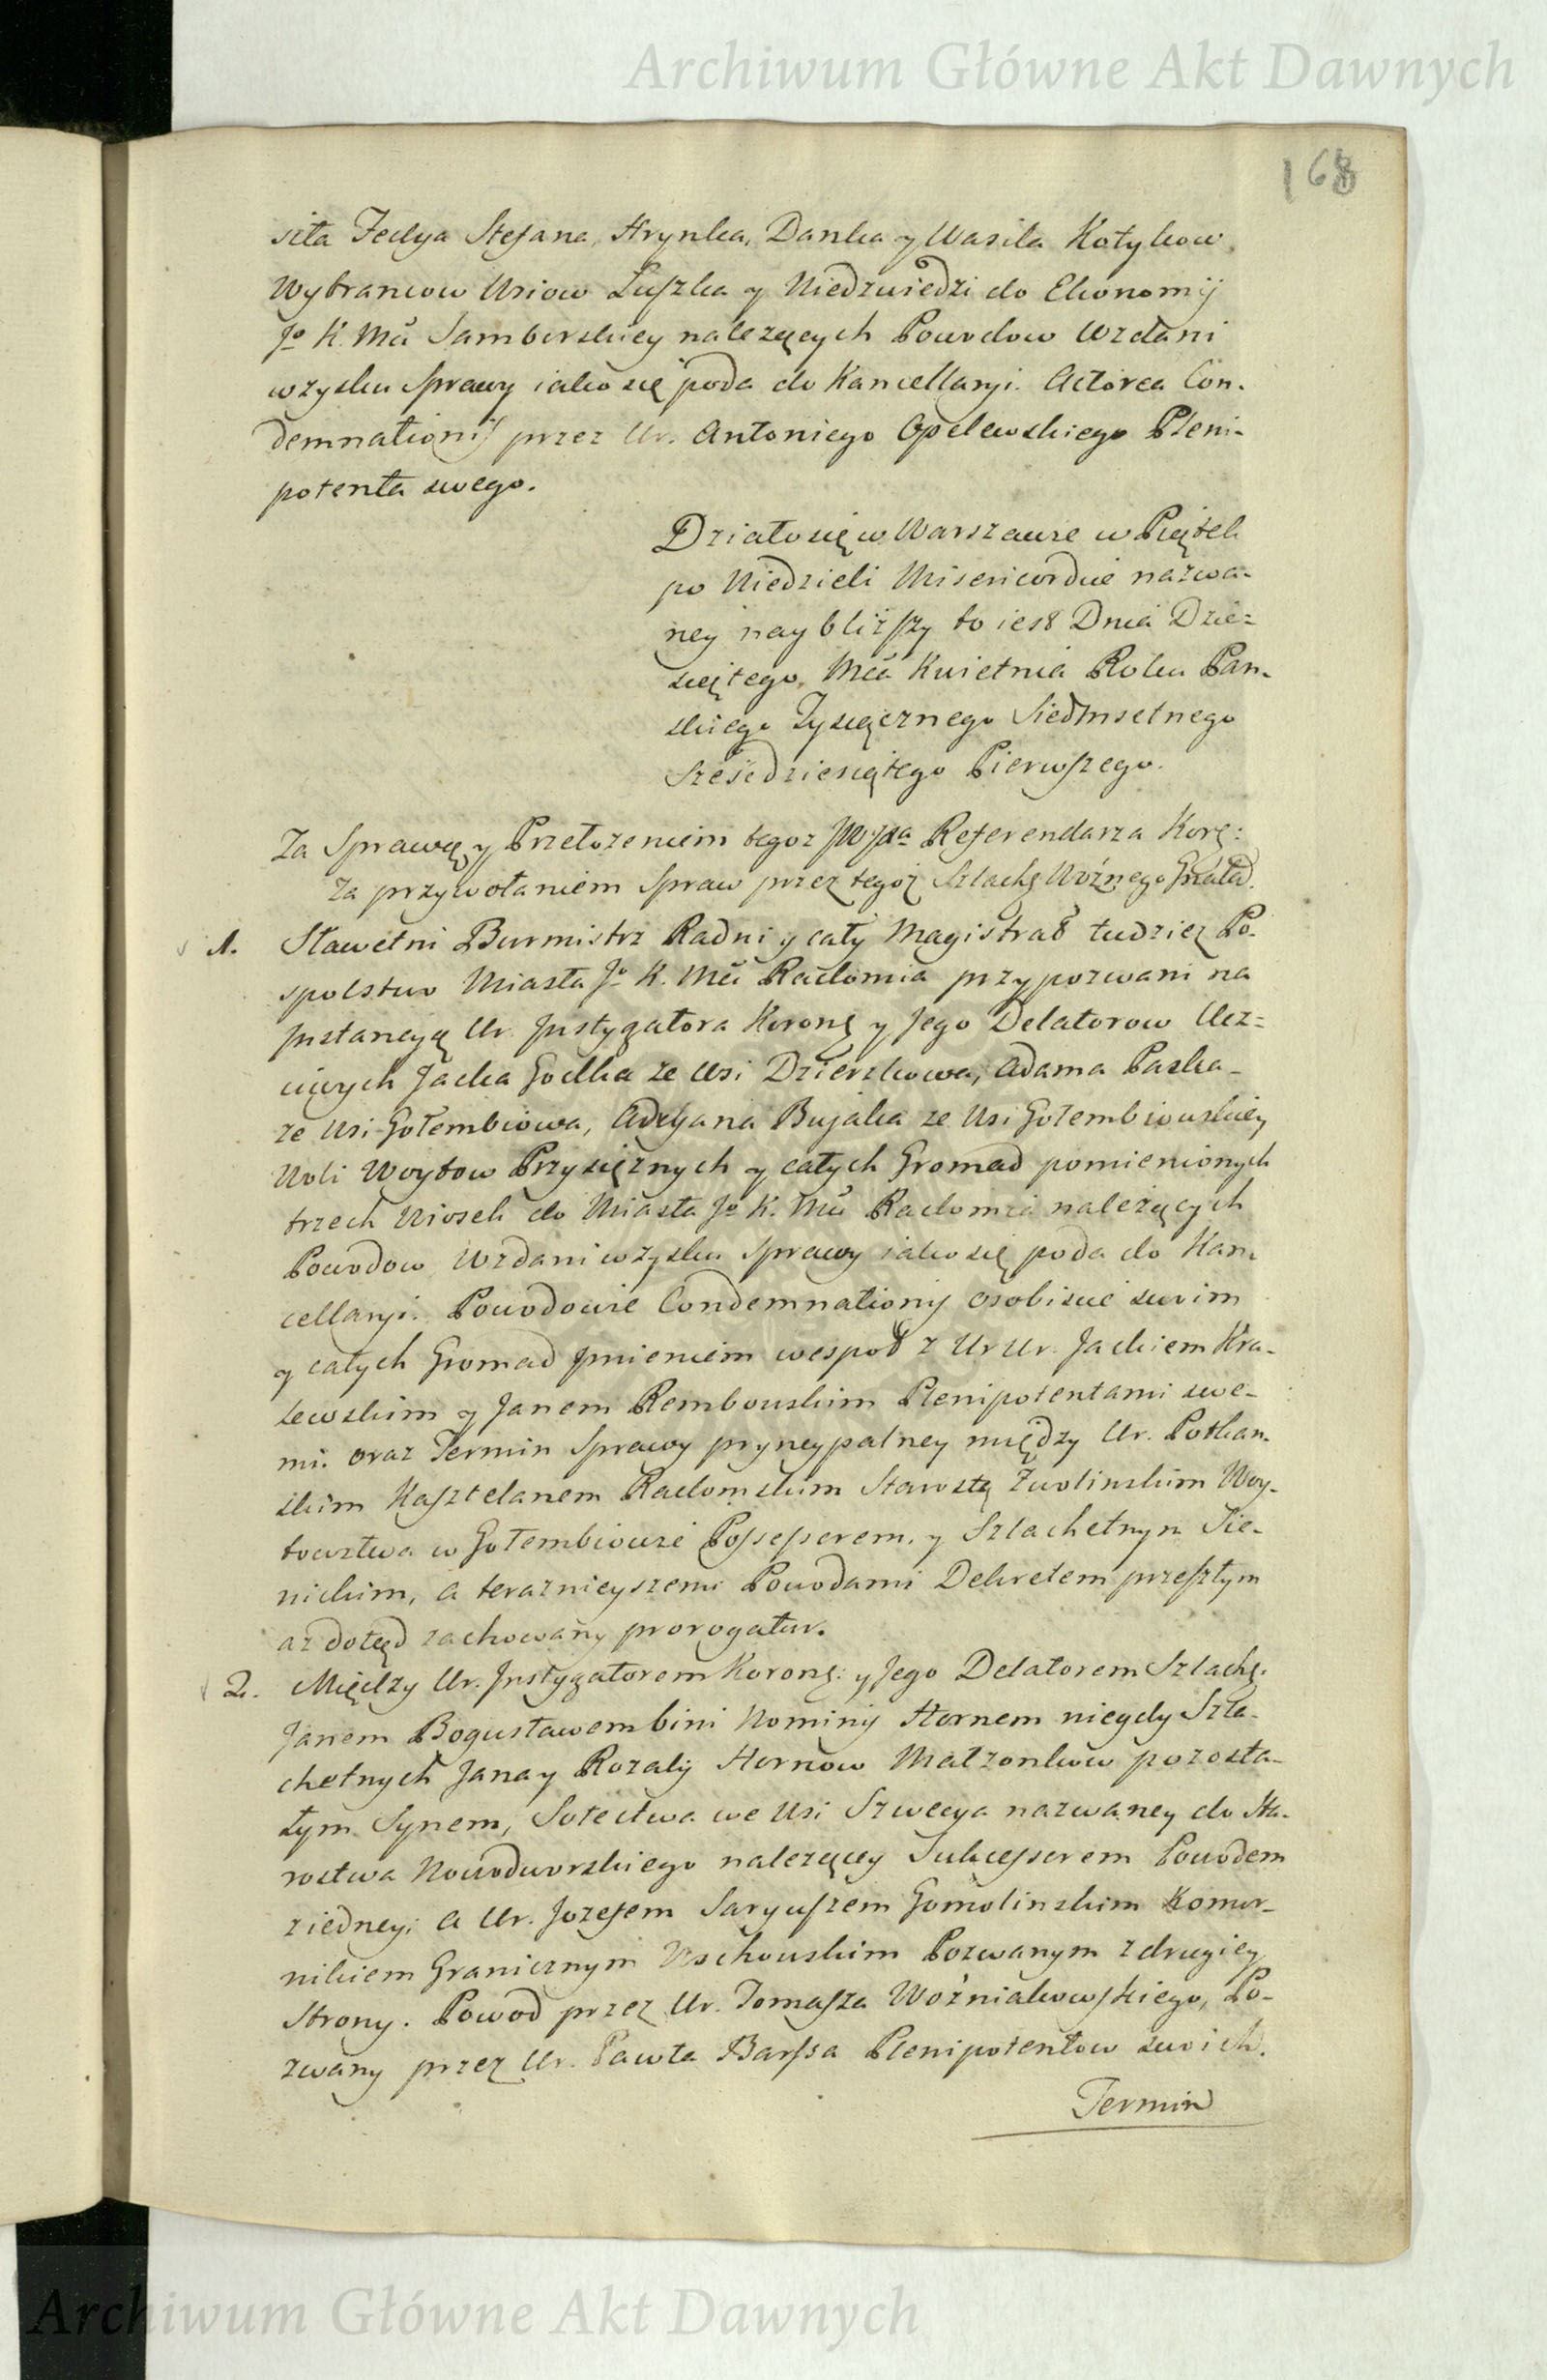 Archiwum Główne Akt Dawnych
168
siła Fedya Stefana, Hrynka, Danka y Wasila Kotykow
Wybrancow Wsiow Łuszka y Niedzwiedzi do Ekonomij
Jo K. Mci Samborskiey należących Powodow Wzdani
w zysku Sprawy iako się poda do Kancellaryi. Actorea Con-
demnationis przez Ur. Antoniego Opelewskiego Pleni-
potenta swego.
Działo się w Warszawie w Piątek
po Niedzieli Misericordiae nazwa-
ney naybliższy to iest Dnia Dzie-
siątego Mca Kwietnia Roku Pan-
skiego Tysiącznego Siedmsetnego
Sześćdziesiątego Pierwszego.
Za Sprawą y Przełożeniem tegoż JW Jana Referendarza Korę:
Za przywołaniem Spraw przez tegoż Szlachę Woźnego Graład.
1. Sławetni Burmistrz Radni y cały Magistrat tudziez Po-
spolstwo Miasta Jo K. Mci Radomia przypozwani na
Jnstancyą Ur. Jnstygatora Koronę y Jego Delatorow Ucz-
ciwych Jacka Godka ze Wsi Dzierzkowa, Adama Paska
ze Wsi Gołembiowa, Adryana Bujaka ze Wsi Gołembiowskiey
Woli Woytow Przysiężnych y całych Gromad pomienionych
trzech Wiosek do Miasta Jo K. Mci Radomia należących
Powodow Wzdani w zysku Sprawy iako się poda do Kan
cellaryi. Powodowie Condemnationis osobiscie swoim
y całych Gromad Jmieniem wespoł z Ur Ur. Jackiem Kra-
lewskim y Janem Rembowskim Plenipotentami swe-
mi. oraz Termin Sprawy pryncypalney między Ur. Potkan-
skim Kasztelanem Radomskim Starostą Zwolinskim Woy-
towstwa w Gołembiowie Possessorem, y Szlachetnym Sie-
nickim, a teraznieyszemi Powodami Dekretem przeszłym
az dotąd zachowany prorogatur.
2. Między Ur. Jnstygatorem Koronę: y Jego Delatorem Szlachę.
Janem Bogusławem bini Nominis Hornem niegdy Szla-
chetnych Jana y Rozalij Hornow Małzonkow pozosta-
łym Synem, Sołectwa we Wsi Szwecya nazwaney do Sta-
rostwa Nowodworskiego należącey Sukcessorem Powodem
z iedney; a Ur. Jozefem Saryuszem Gomolinskim Komor-
nikiem Granicznym Wschowskim Pozwanym z drugiey
Strony. Powod przez Ur. Tomasza Woźniakowskiego, Po-
zwany przez Ur. Pawła Barssa Plenipotentow swoich.
Termin
Archiwum Główne Akt Dawnych